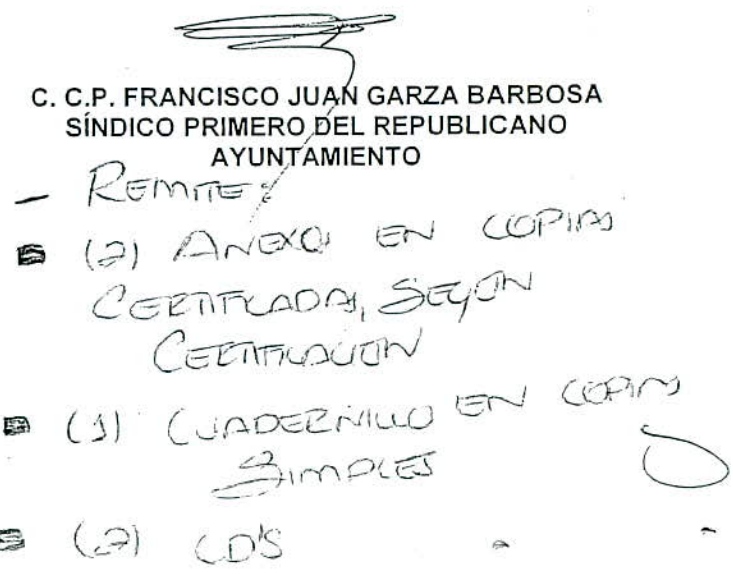 C. C.P. FRANCISCO JUAN GARZA BARBOSA
SÍNDICO PRIMERO DEL REPUBLICANO
AYUNTAMIENTO
- REMITE:
(2) ANEXOS EN COPIAS
CERTIFICADAS, SEGÚN
CERTIFICACION
(1) CUADERNILLO EN COPIAS
SIMPLES
(2) CD'S